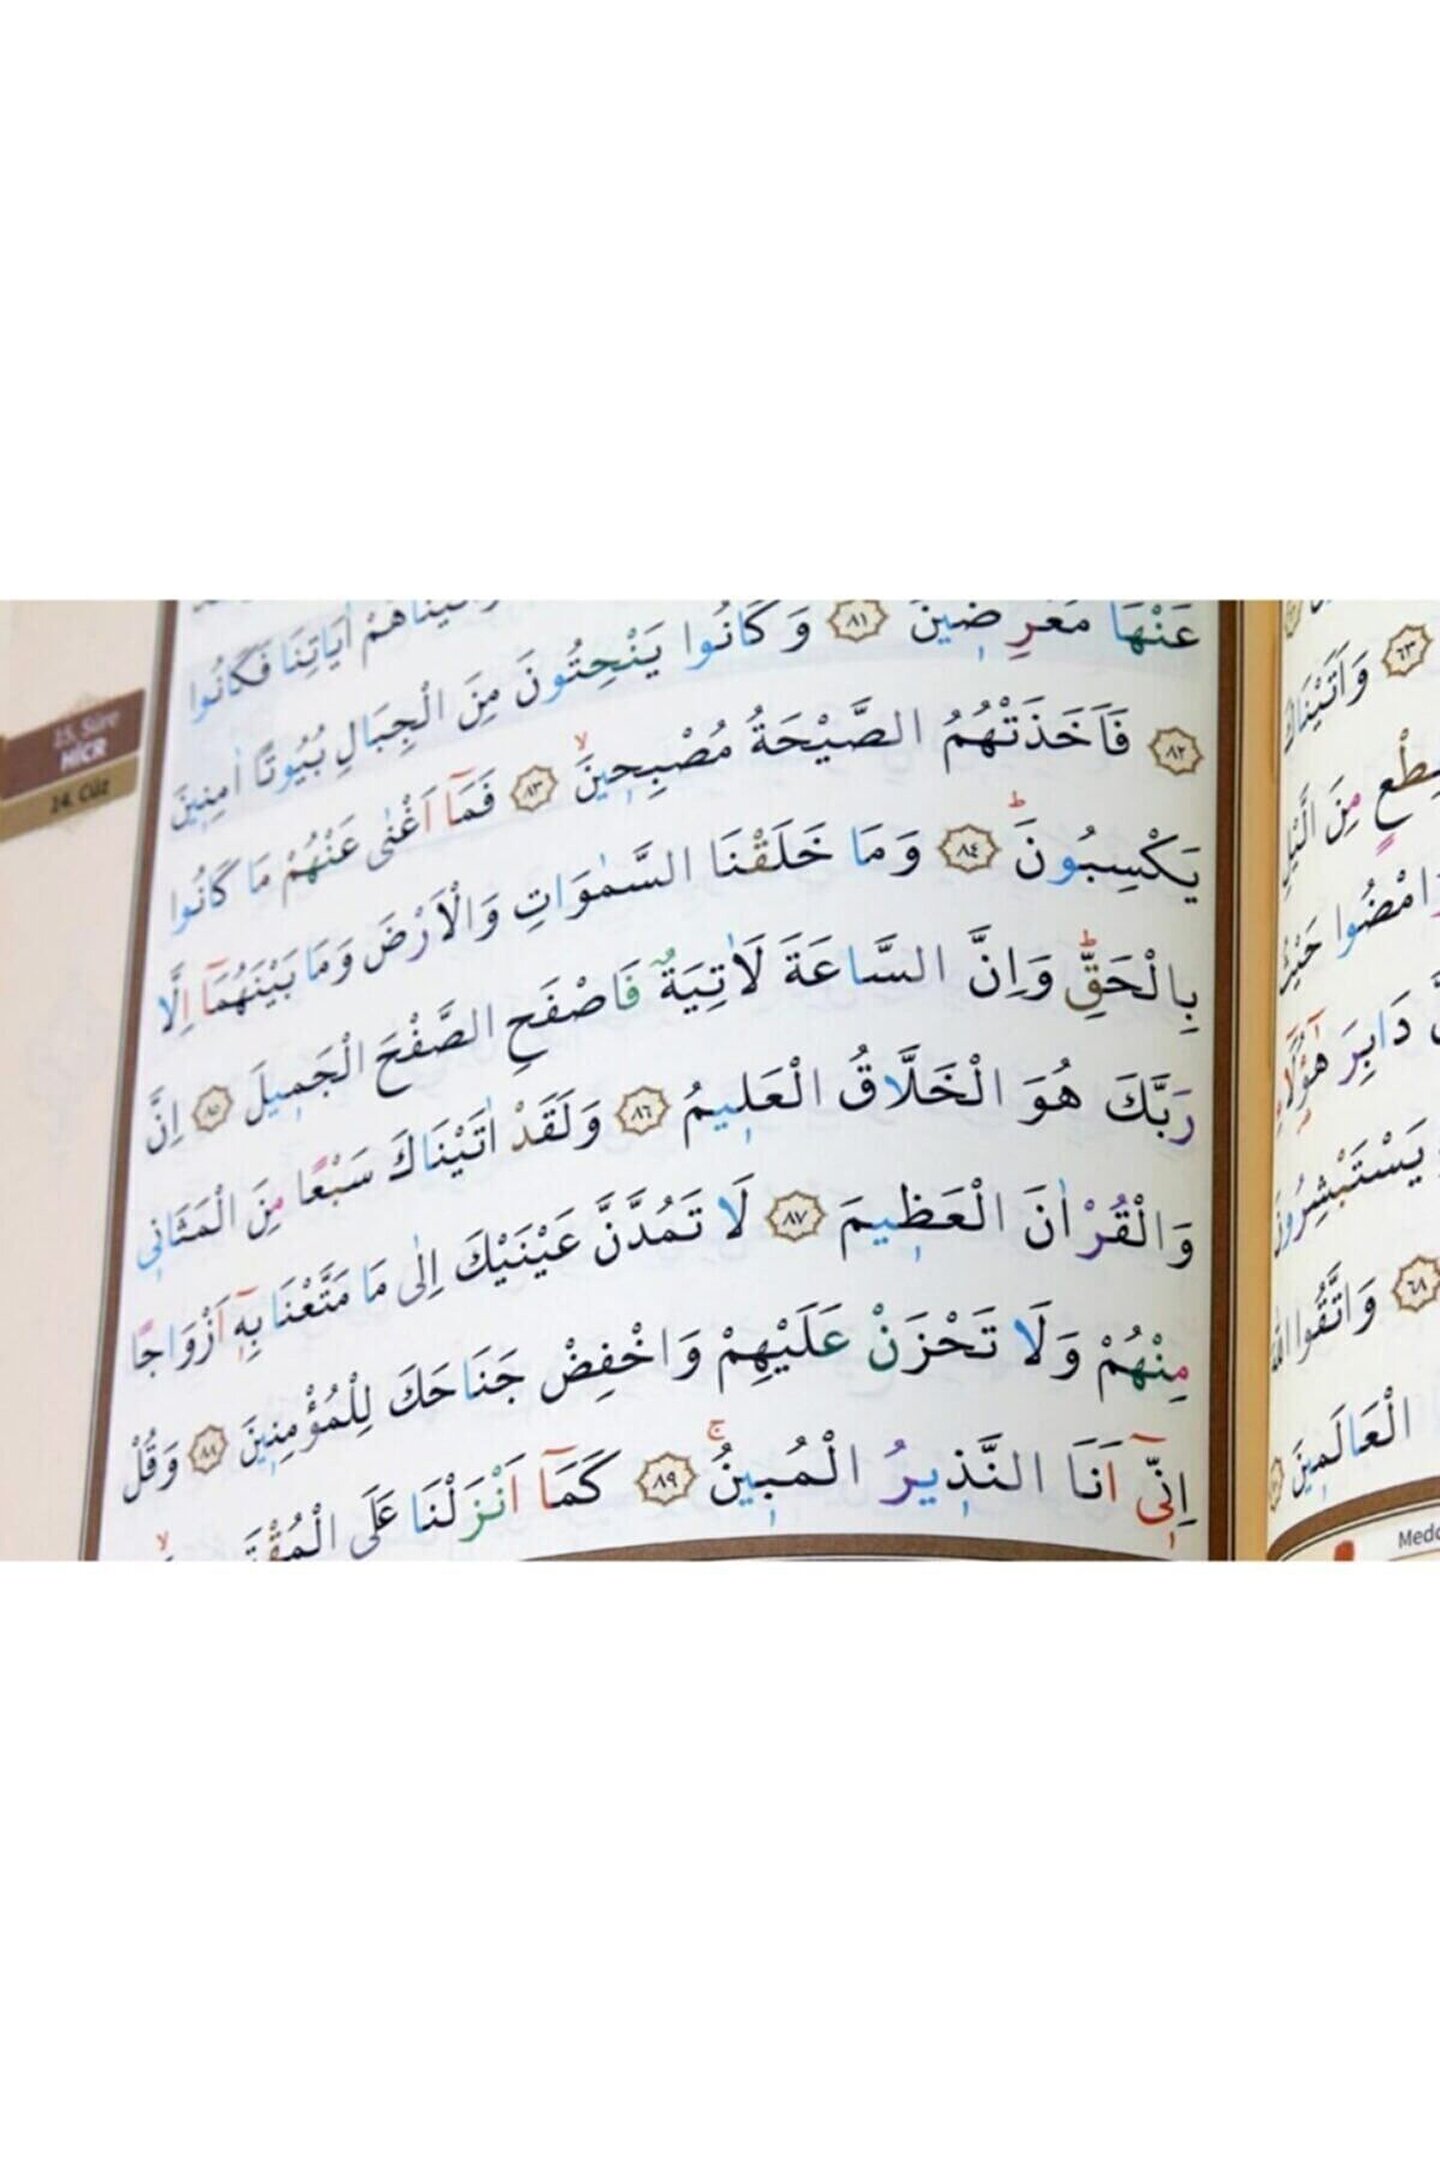 وَاٰتَيْنَاهُمْ اٰيَاتِنَا فَكَانُوا
عَنْهَا مُعْرِضٖينَ ﴿٨١﴾ وَكَانُوا يَنْحِتُونَ مِنَ الْجِبَالِ بُيُوتًا اٰمِنٖينَ
﴿٨٢﴾ فَاَخَذَتْهُمُ الصَّيْحَةُ مُصْبِحٖينَۙ ﴿٨٣﴾ فَمَٓا اَغْنٰى عَنْهُمْ مَا كَانُوا
يَكْسِبُونَؕ ﴿٨٤﴾ وَمَا خَلَقْنَا السَّمٰوَاتِ وَالْاَرْضَ وَمَا بَيْنَهُمَٓا اِلَّا
بِالْحَقِّؕ وَاِنَّ السَّاعَةَ لَاٰتِيَةٌ فَاصْفَحِ الصَّفْحَ الْجَمٖيلَ ﴿٨٥﴾ اِنَّ
رَبَّكَ هُوَ الْخَلَّاقُ الْعَلٖيمُ ﴿٨٦﴾ وَلَقَدْ اٰتَيْنَاكَ سَبْعًا مِنَ الْمَثَانٖى
وَالْقُرْاٰنَ الْعَظٖيمَ ﴿٨٧﴾ لَا تَمُدَّنَّ عَيْنَيْكَ اِلٰى مَا مَتَّعْنَا بِهٖٓ اَزْوَاجًا
مِنْهُمْ وَلَا تَحْزَنْ عَلَيْهِمْ وَاخْفِضْ جَنَاحَكَ لِلْمُؤْمِنٖينَ ﴿٨٨﴾ وَقُلْ
اِنّٖٓى اَنَا النَّذٖيرُ الْمُبٖينُۚ ﴿٨٩﴾ كَمَٓا اَنْزَلْنَا عَلَى
15. Sûre
HİCR
14. Cüz
﴿٦٣﴾ وَاَتَيْنَاكَ
مِنَ الَّيْلِ
وَامْضُوا حَيْثُ
دَابِرَ هٰٓؤُلَٓاءِ
يَسْتَبْشِرُونَ
﴿٦٨﴾ وَاتَّقُوا اللّٰهَ
الْعَالَمٖينَ